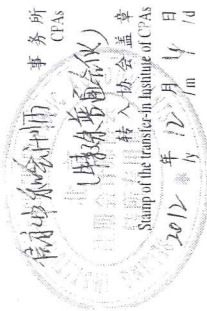 会计师 事务所
CPAs
(特殊普通合伙)
转入协会盖章
Stamp of the transfer-in Institute of CPAs
2012 年 12 月 14 日
/y /m /d